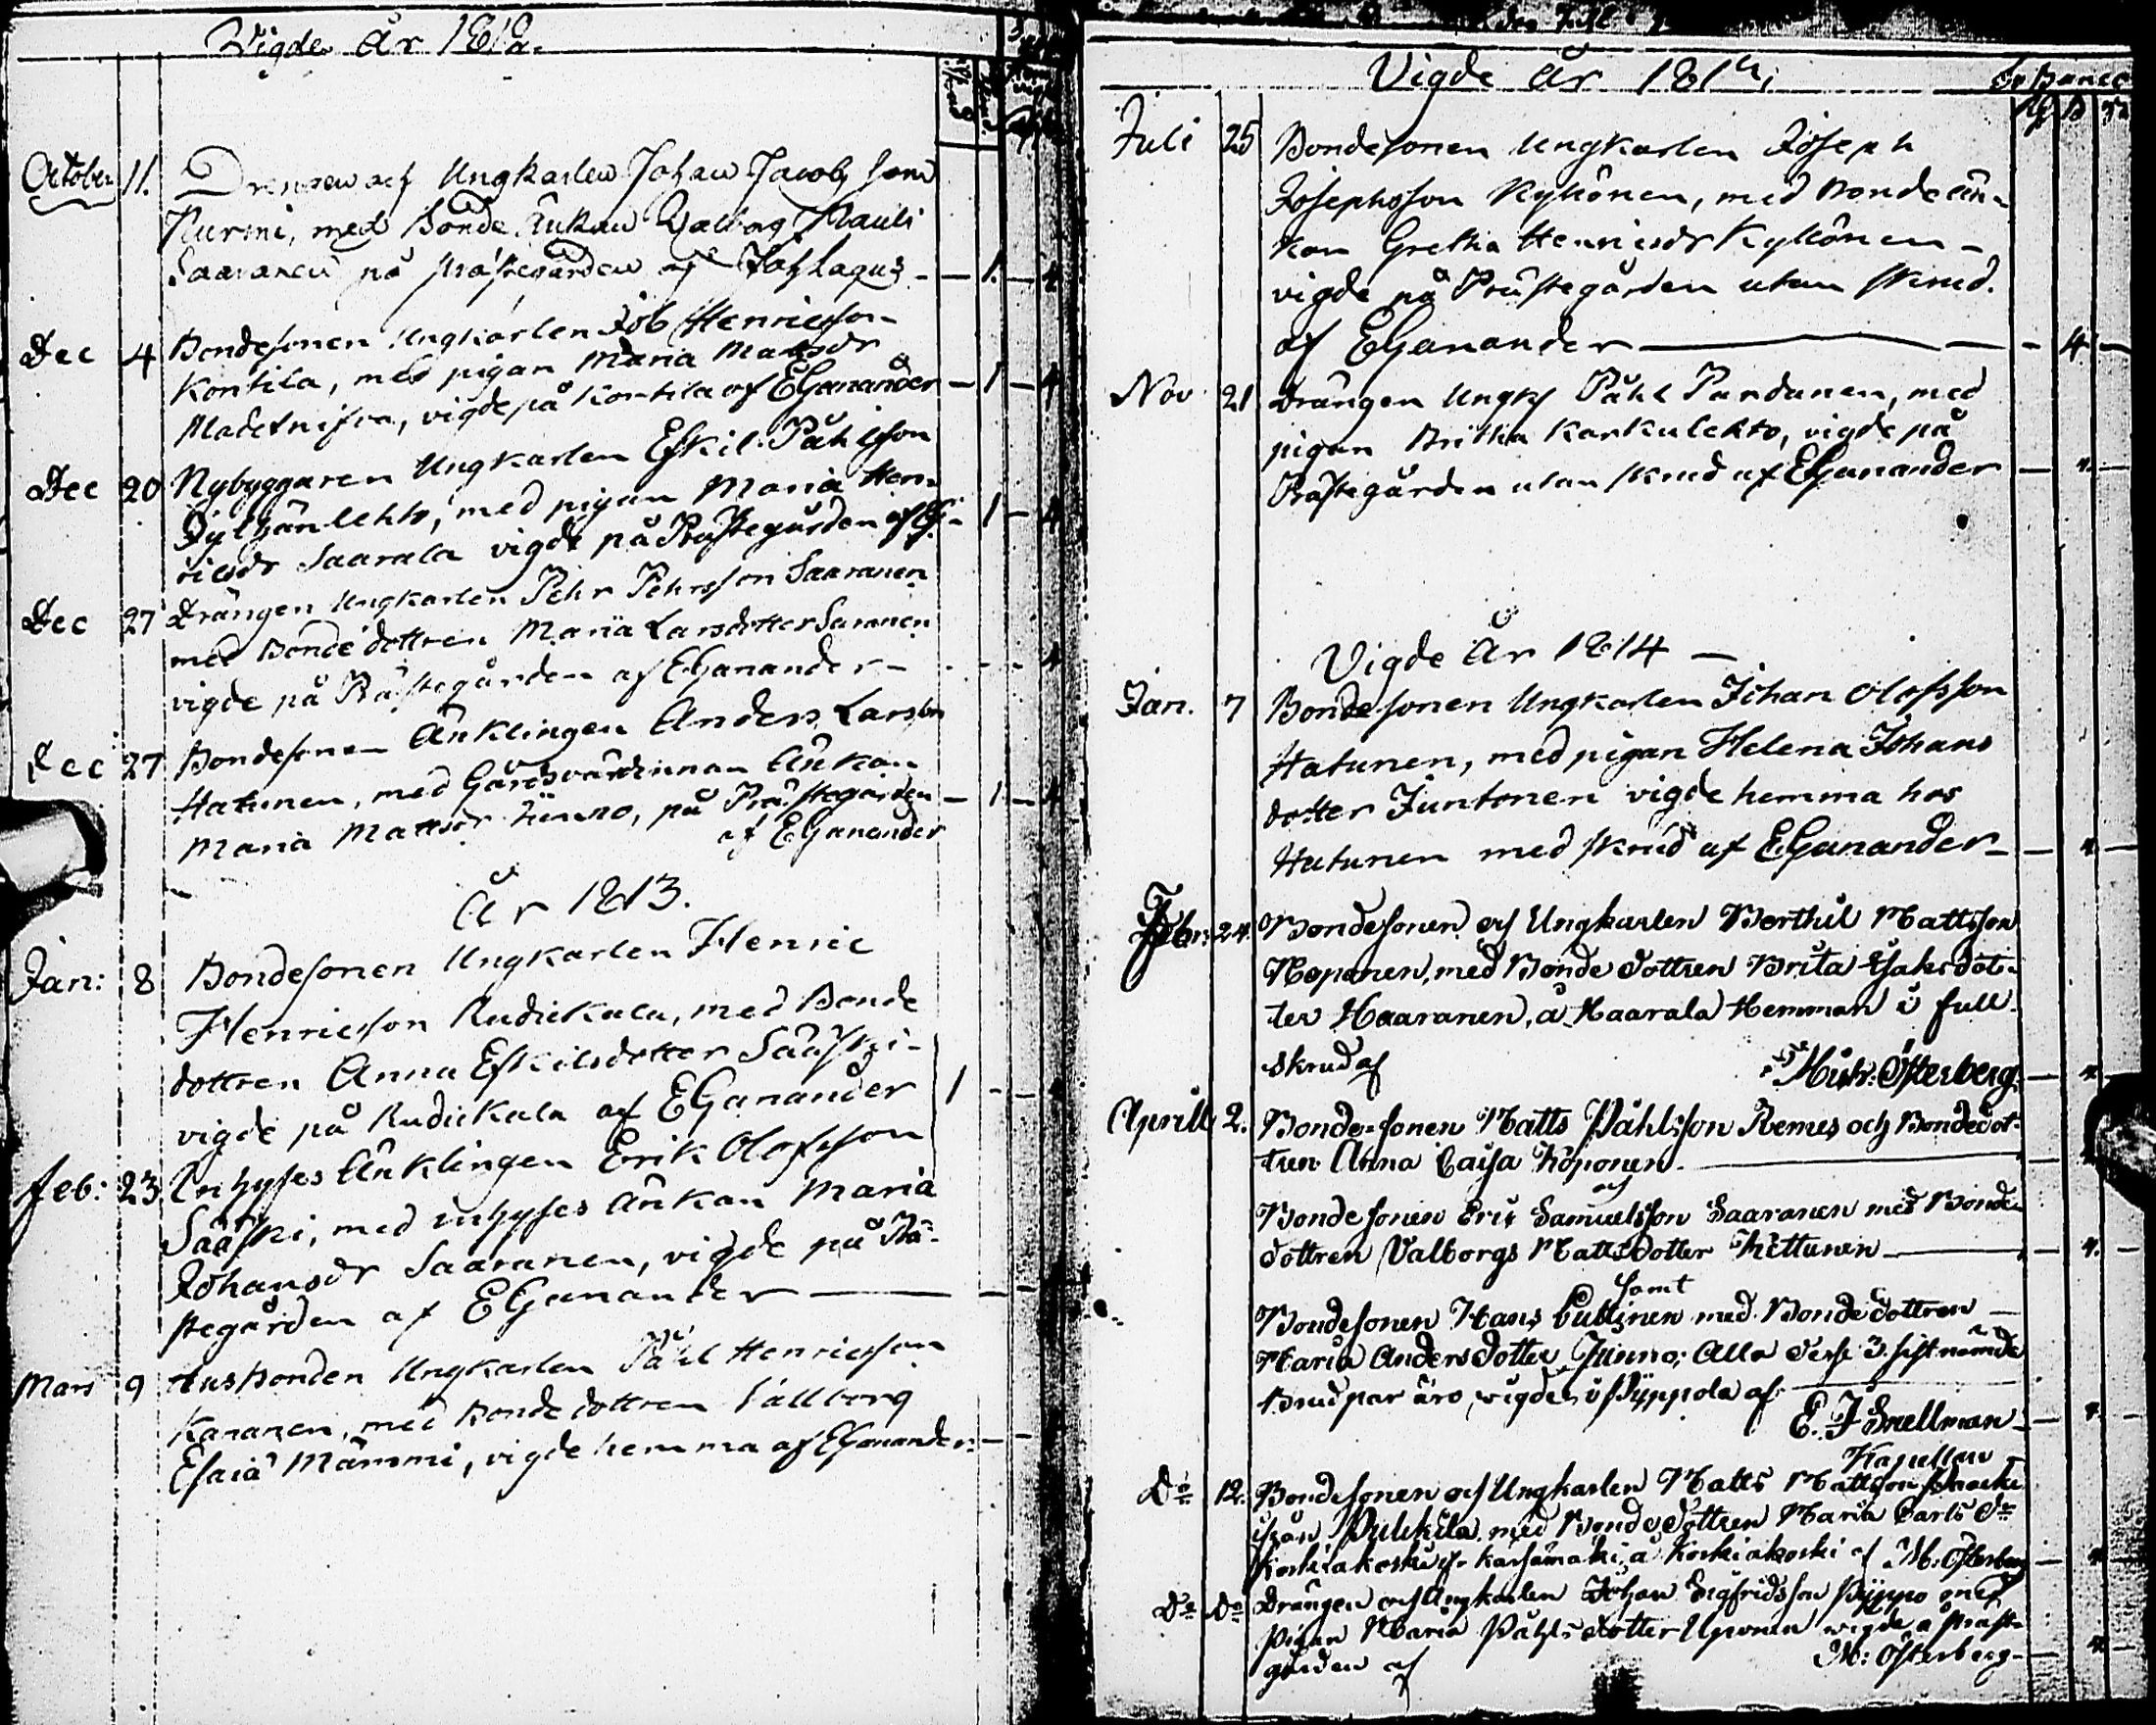 Vigde År 1812.
October 11. Drengen och Ungkarlen Johan Jacobsson
Nurmi, med Bonde Änkan Valborg Mauli
Saaranen på prästegården af Joh Lagus - 1. - 4
Dec 4 Bondesonen Ungkarlen Job Henricsson
Kontila, med pigan Maria Mattsdr
Madetnisca, vigde på Kontila af EGanander - 1 - 4
Dec 20 Nybyggaren Ungkarlen Eskil Påhlsson
lehto, med pigan Maria Hen-
ricsdr Saarala vigde på Prästegården af EG - 1 - 4
Dec 27 Drängen Ungkarlen Pehr Pehrsson Saaranen
med Bonde dottren Maria Larsdotter Saranen
vigde på Prästegården af EGanander - 4
Dec 27 Bondesonen Änklingen Anders Larsson
Hatunen, med Gårdsvärdinnan Änkan
Maria Mattsdr Junno, på Prästegården - 1 - 4
af EGanander
År 1813.
Jan: 8 Bondesonen Ungkarlen Henric
Henricsson Rudickala, med Bonde
dottren Anna Eskilsdotter Sääski -
vigde på Rudickala af EGanander 1 -
Feb: 23 Inhyses Änklingen Erik Olofsson
Sääski, med inhyses änkan Maria
Johansdr Saaranen, vigde på Prä-
stegården af EGanander
Mars 9 Husbonden Ungkarlen Påhl Henricsson
Kananen, med Bonde dottren Vallborg
Esaiæ Mämmi, vigde hemma af EGanander
Vigde År 181
Sr Banco
Juli 25 Bondesonen Ungkarlen Joseph
Josephsson Kyllönen, med Bonde än-
kan Gretha Henricsdr Kyllönen -
vigde på Prästegården utan skrud.
af EGanander - 4 -
Nov 21 Drängen Ungk Påhl Pardanen, med
pigan Britha Karkulehto, vigde på
Prästegården utan skrud af EGanander - 4 -
Vigde År 1814 -
Jan. 7 Bondesonen Ungkarlen Johan Olofsson
Hatunen, med pigan Helena Johans
dotter Juntonen vigde hemma hos
Hatunen med skrud af EGanander - 4 -
Febr: 24. Bondesonen och Ungkarlen Berthil Mattsson
Koponen, med Bonde dottren Brita Esaksdot-
ter Haaranen, å Haarala Hemman i full
skrud af Mich: Österberg. - 4 -
Aprill 2. Bonde-sonen Matts Påhlsson Remes och Bondedot-
tren Anna Caisa Koponen.
och
Bondesonen Eric Samuelsson Saaranen med Bonde
dottren Valborgs Mattsdotter Kittunen - 4. -
Samt
Bondesonen Hans Pulkinen med Bonde dottren -
Maria Andersdotter Junno; Alla desse 3. sistnämde
Brudpar äro wigde i Pyppola af
E. J Snellman - 4 -
Kapellan
Do 12. Bondesonen och Ungkarlen Matts Mattsson
ifrån Pulckila med Bonde Dottren Maria Carls Dr
Koskiakoski if. Karsämäki, å Koskiakoski af M: Österberg - 4
Do Do Drängen och Ungkarlen Johan Sigfridsson Pyppo med
Pigan Maria Påhls dotter Uponen wigde å präst-
gården af M: Österberg - 4 -